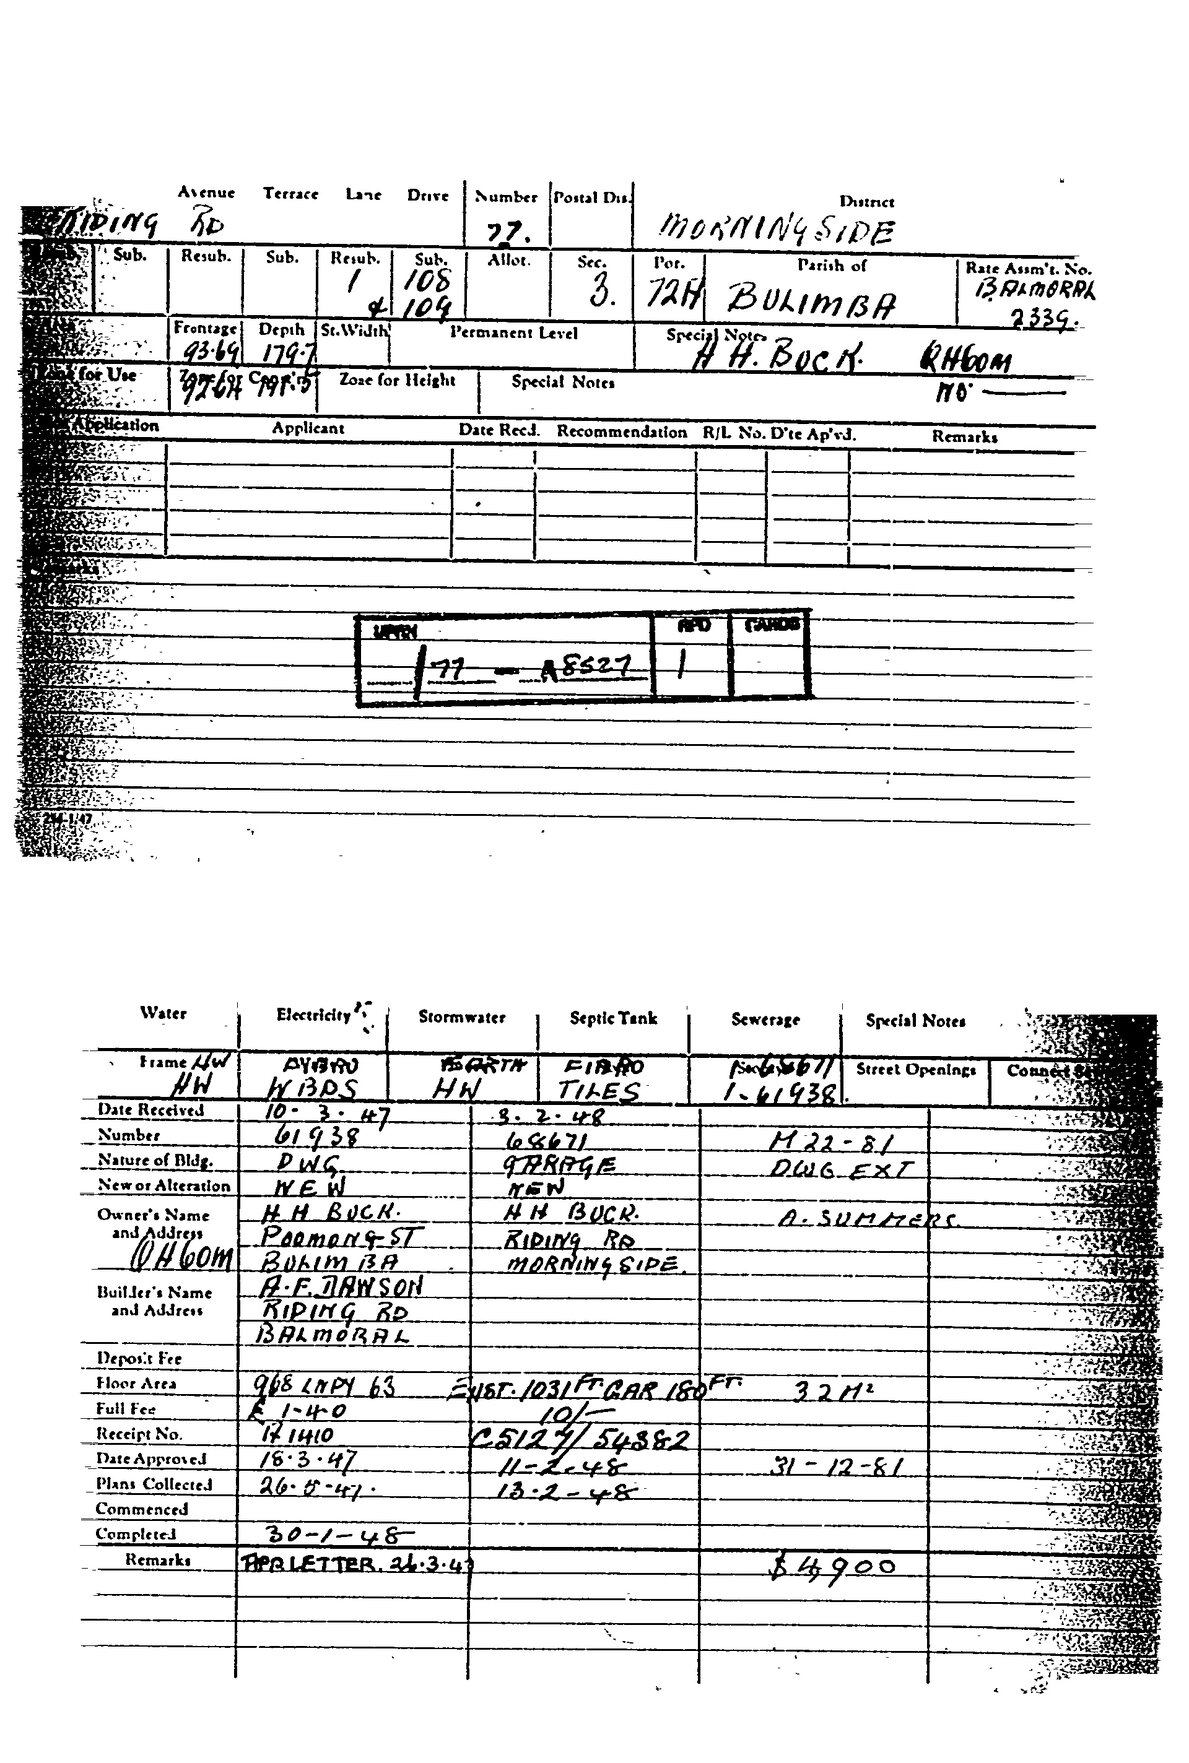 Avenue Terrace Lane Drive Number Postal Dis. District
RIDING RD 77. MORNINGSIDE
Sub. Resub. Sub. Resub. Sub. Allot. Sec. Por. Parish of Rate Assm't. No.
1 108 3. 72A BULIMBA BALMORAL
& 109 2339.
Frontage Depth St.Width Permanent Level Special Notes
93.69 179.7 H H. BUCK. QH60M
for Use Zone for Height Special Notes NO
Application Applicant Date Recd. Recommendation R/L No. D'te Ap'vd. Remarks
UPRN RPD CARDS
/77 — A8527 1
254-1/47
Water Electricity Stormwater Septic Tank Sewerage Special Notes
Frame HW EARTH FIBRO 68671 Street Openings
HW WBDS HW TILES 1-61938.
Date Received 10. 3. 47 3. 2. 48
Number 61938 68671 M 22-81
Nature of Bldg. DWG GARAGE DWG EXT
New or Alteration NEW NEW
Owner's Name H H BUCK. H H BUCK. A. SUMMERS.
and Address ST RIDING RD
QH60M BULIMBA MORNINGSIDE.
Builder's Name A. F. DAWSON
and Address RIDING RD
BALMORAL
Deposit Fee
Floor Area 968 LNPY 63 EXIST. 1031 FT. GAR 180 FT. 32 M²
Full Fee £ 1-4-0 10/-
Receipt No. 1410 C5127/54382
Date Approved 18.3.47 11-2-48 31-12-81
Plans Collected 26.5.47. 13.2-48
Commenced
Completed 30-1-48
Remarks LETTER. 26.3.47 $4,900